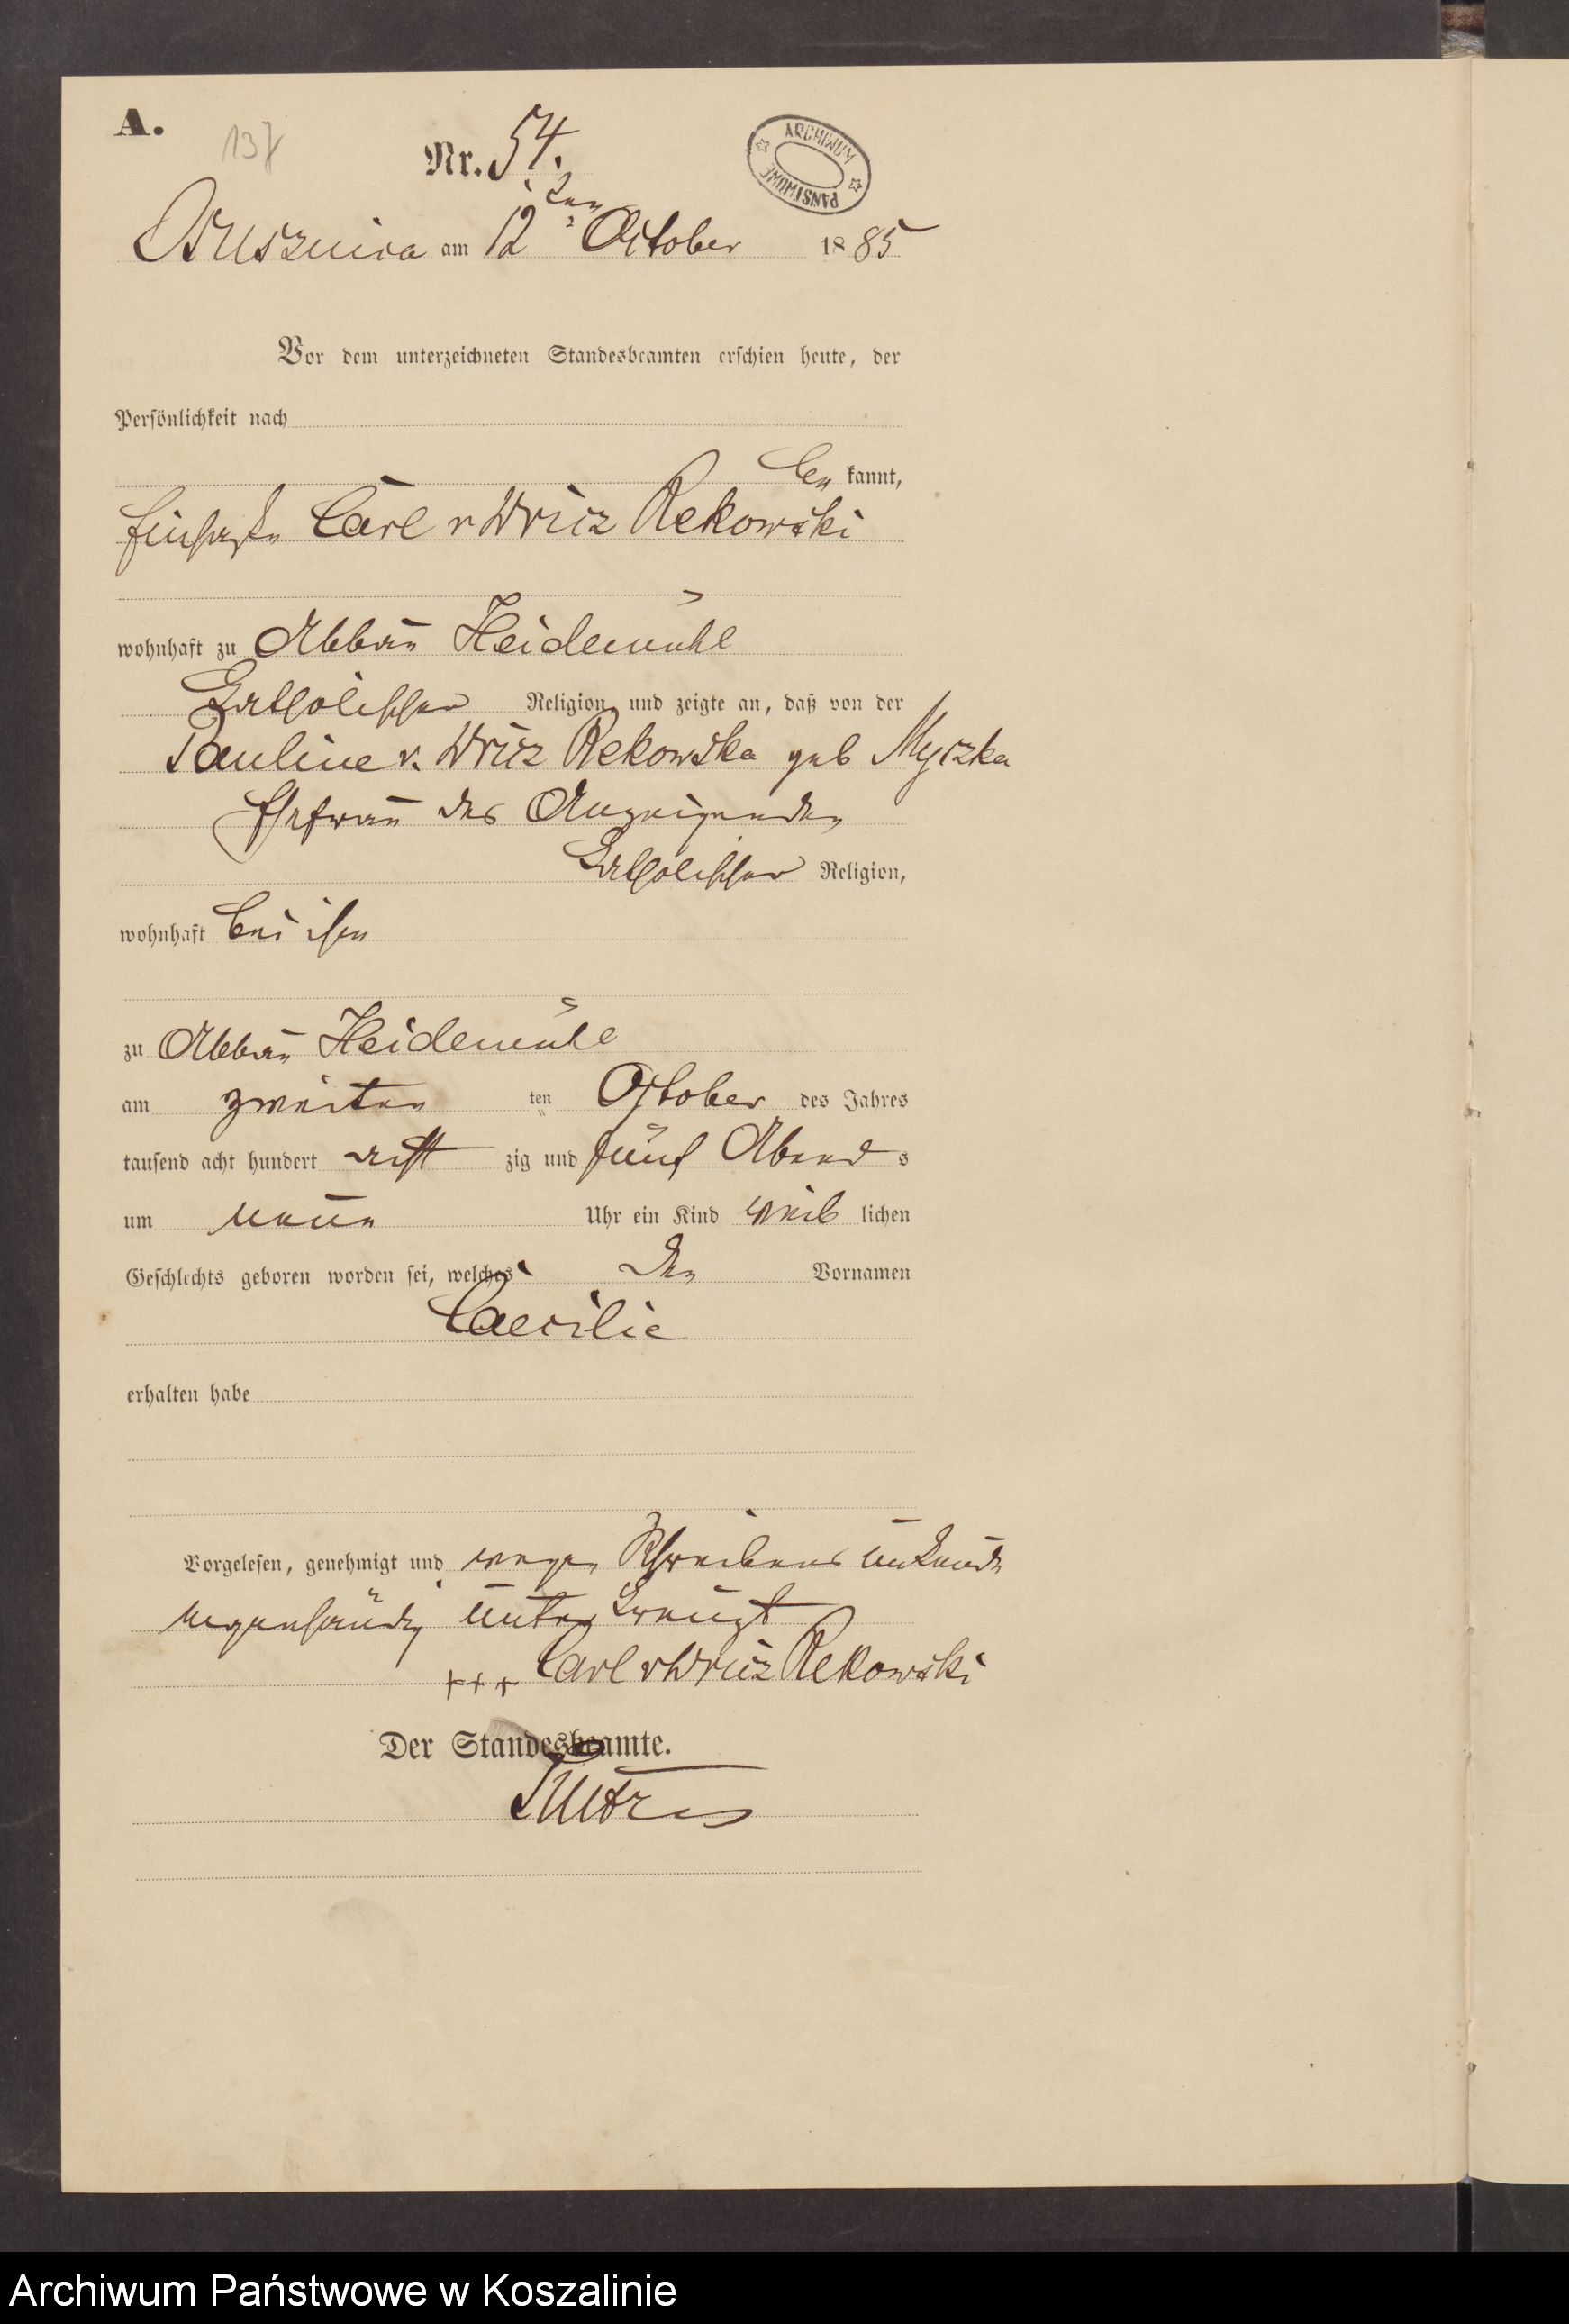 A.
137
Nr. 54.
Ossusznica am 12ten October 1885
ARCHIWUM PAŃSTWOWE
Vor dem unterzeichneten Standesbeamten erschien heute, der
Persönlichkeit nach
be kannt,
Einsasse Carl v Wricz Rekowski
wohnhaft zu Abbau Heidemühl
katholischer Religion, und zeigte an, daß von der
Pauline v. Wricz Rekowska geb Myczka
Ehefrau des Anzeigenden
katholischer Religion,
wohnhaft bei ihm
zu Abbau Heidemühl
am zweiten ten October des Jahres
tausend acht hundert acht zig und fünf Abend s
um neun Uhr ein Kind weib lichen
Geschlechts geboren worden sei, welches den Vornamen
Caecilie
erhalten habe
Vorgelesen, genehmigt und wegen Schreibens unkunde
unterkreuzt
+++ Carl v Wricz Rekowski
Der Standesbeamte.
Archiwum Państwowe w Koszalinie